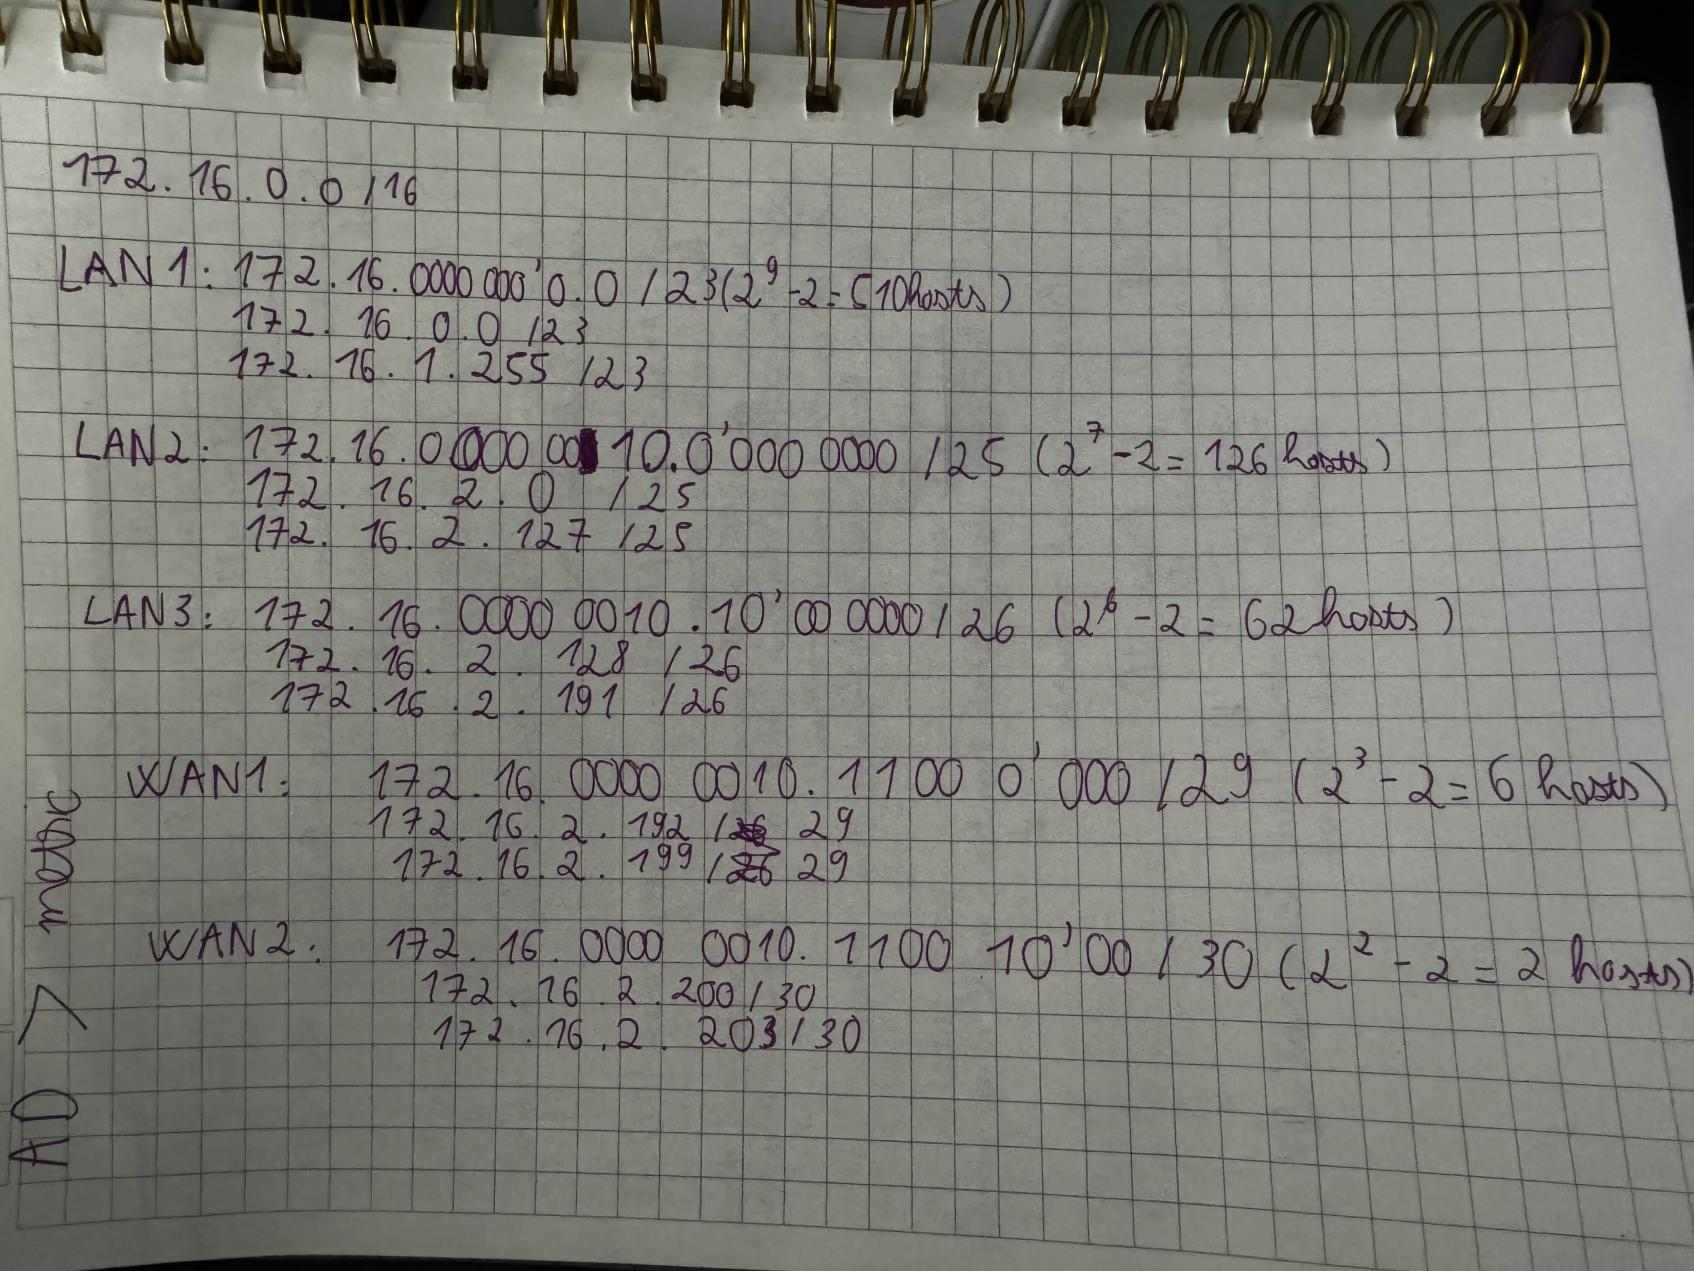 172.16.0.0/16
LAN1: 172.16.0000 000'0.0/23(2⁹-2=510hosts)
172.16.0.0/23
172.16.1.255/23
LAN2: 172.16.0000 0010.0'000 0000/25 (2⁷-2=126hosts)
172.16.2.0/25
172.16.2.127/25
LAN3: 172.16.0000 0010.10'00 0000/26 (2⁶-2=62hosts)
172.16.2.128/26
172.16.2.191/26
WAN1: 172.16.0000 0010.1100 0'000/29 (2³-2=6 hosts)
172.16.2.192/29
172.16.2.199/29
WAN2: 172.16.0000 0010.1100 10'00/30 (2²-2=2 hosts)
172.16.2.200/30
172.16.2.203/30
AD > metric